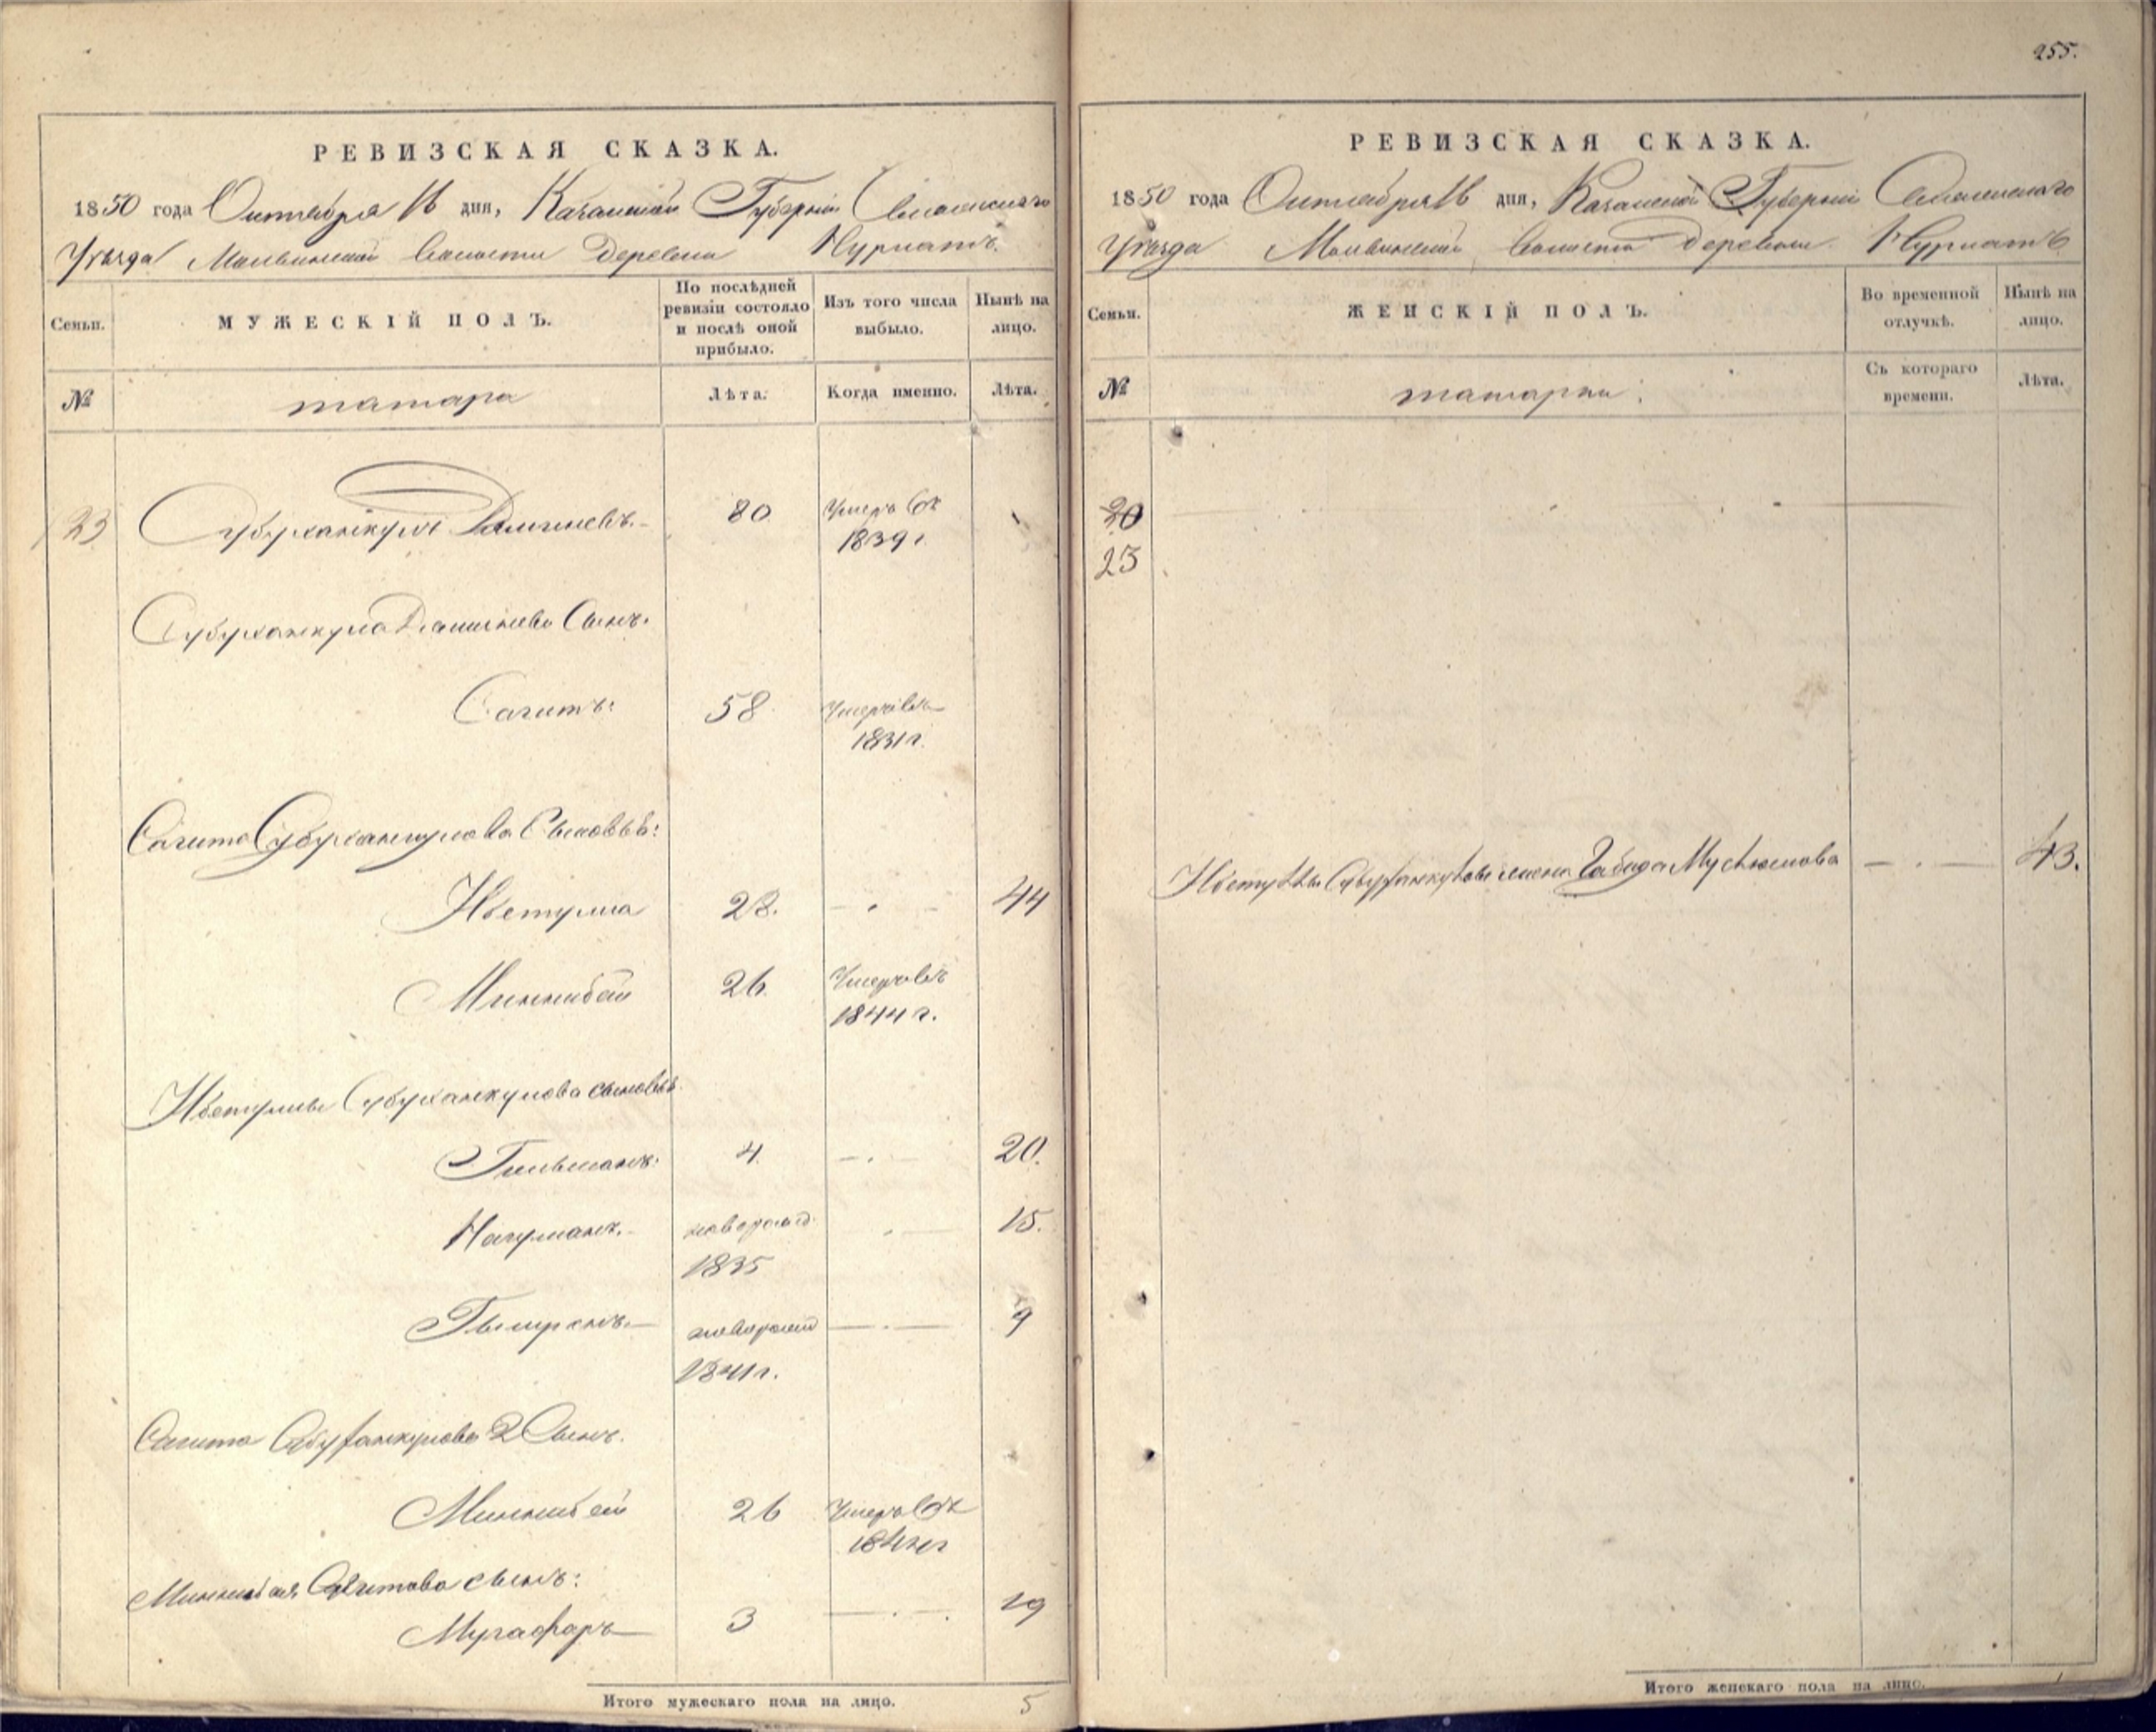 255.
РЕВИЗСКАЯ СКАЗКА.
1850 года Октября 16 дня, Казанской Губернии Спасскаго
Уѣзда Волости Деревни Нурлатъ
Семьи. МУЖЕСКІЙ ПОЛЪ. По послѣдней ревизіи состояло и послѣ оной прибыло. Изъ того числа выбыло. Нынѣ на лицо.
№ татара Лѣта. Когда именно. Лѣта.
23 Субуханкулъ 80 Умеръ въ
1839 г.
Субуханкула Сынъ.
Сагитъ: 58 Умеръ въ
1831 г.
Сагита Субухангулова Сыновья:
Ибетулла 28. 44
Миннибай 26. Умеръ въ
1844 г.
Ибетуллы Субуханкулова сыновья
Гильманъ: 4. 20.
Нагуманъ. новорожд. 15.
1835
новорожд 9
1841 г.
Сагита Субуханкулова 2 Сынъ.
Миннибай 26 Умеръ въ
1844 г
Миннибая Сагитова сынъ:
Мугафаръ 3 19
Итого мужескаго пола на лицо. 5
РЕВИЗСКАЯ СКАЗКА.
1850 года Октября 16 дня, Казанской Губерніи Спасскаго
Уѣзда Волости Деревни Нурлатъ
Семьи. ЖЕНСКІЙ ПОЛЪ. Во временной отлучкѣ. Нынѣ на лицо.
№ татарки: Съ котораго времени. Лѣта.
20
23
Ибетуллы Субуханкулова жена Габида Муслюмова 43.
Итого женскаго пола на лицо. 1